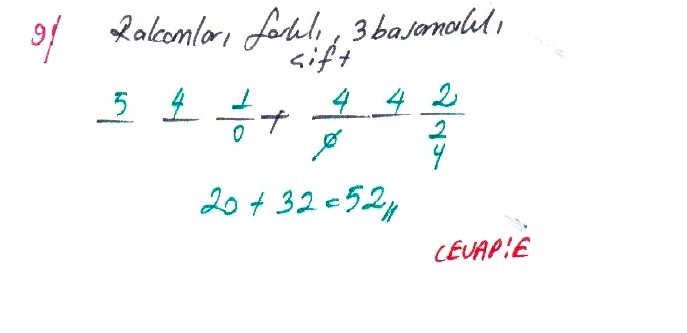 9) Rakamları farklı, 3 basamaklı
çift
5 4 1 + 4 4 2
0 0 2
4
20 + 32 = 52,,
CEVAP: E